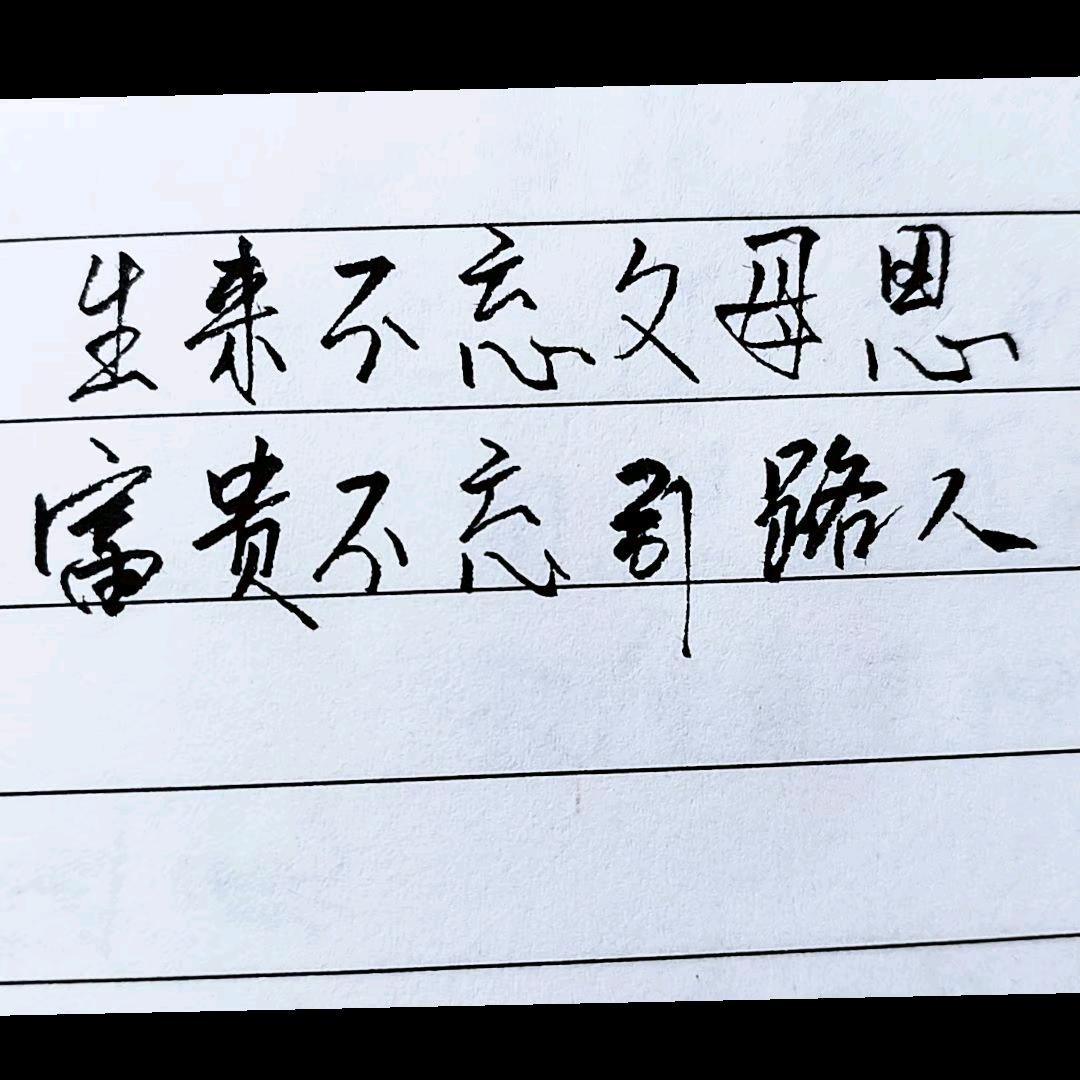 生来不忘父母恩
富贵不忘引路人